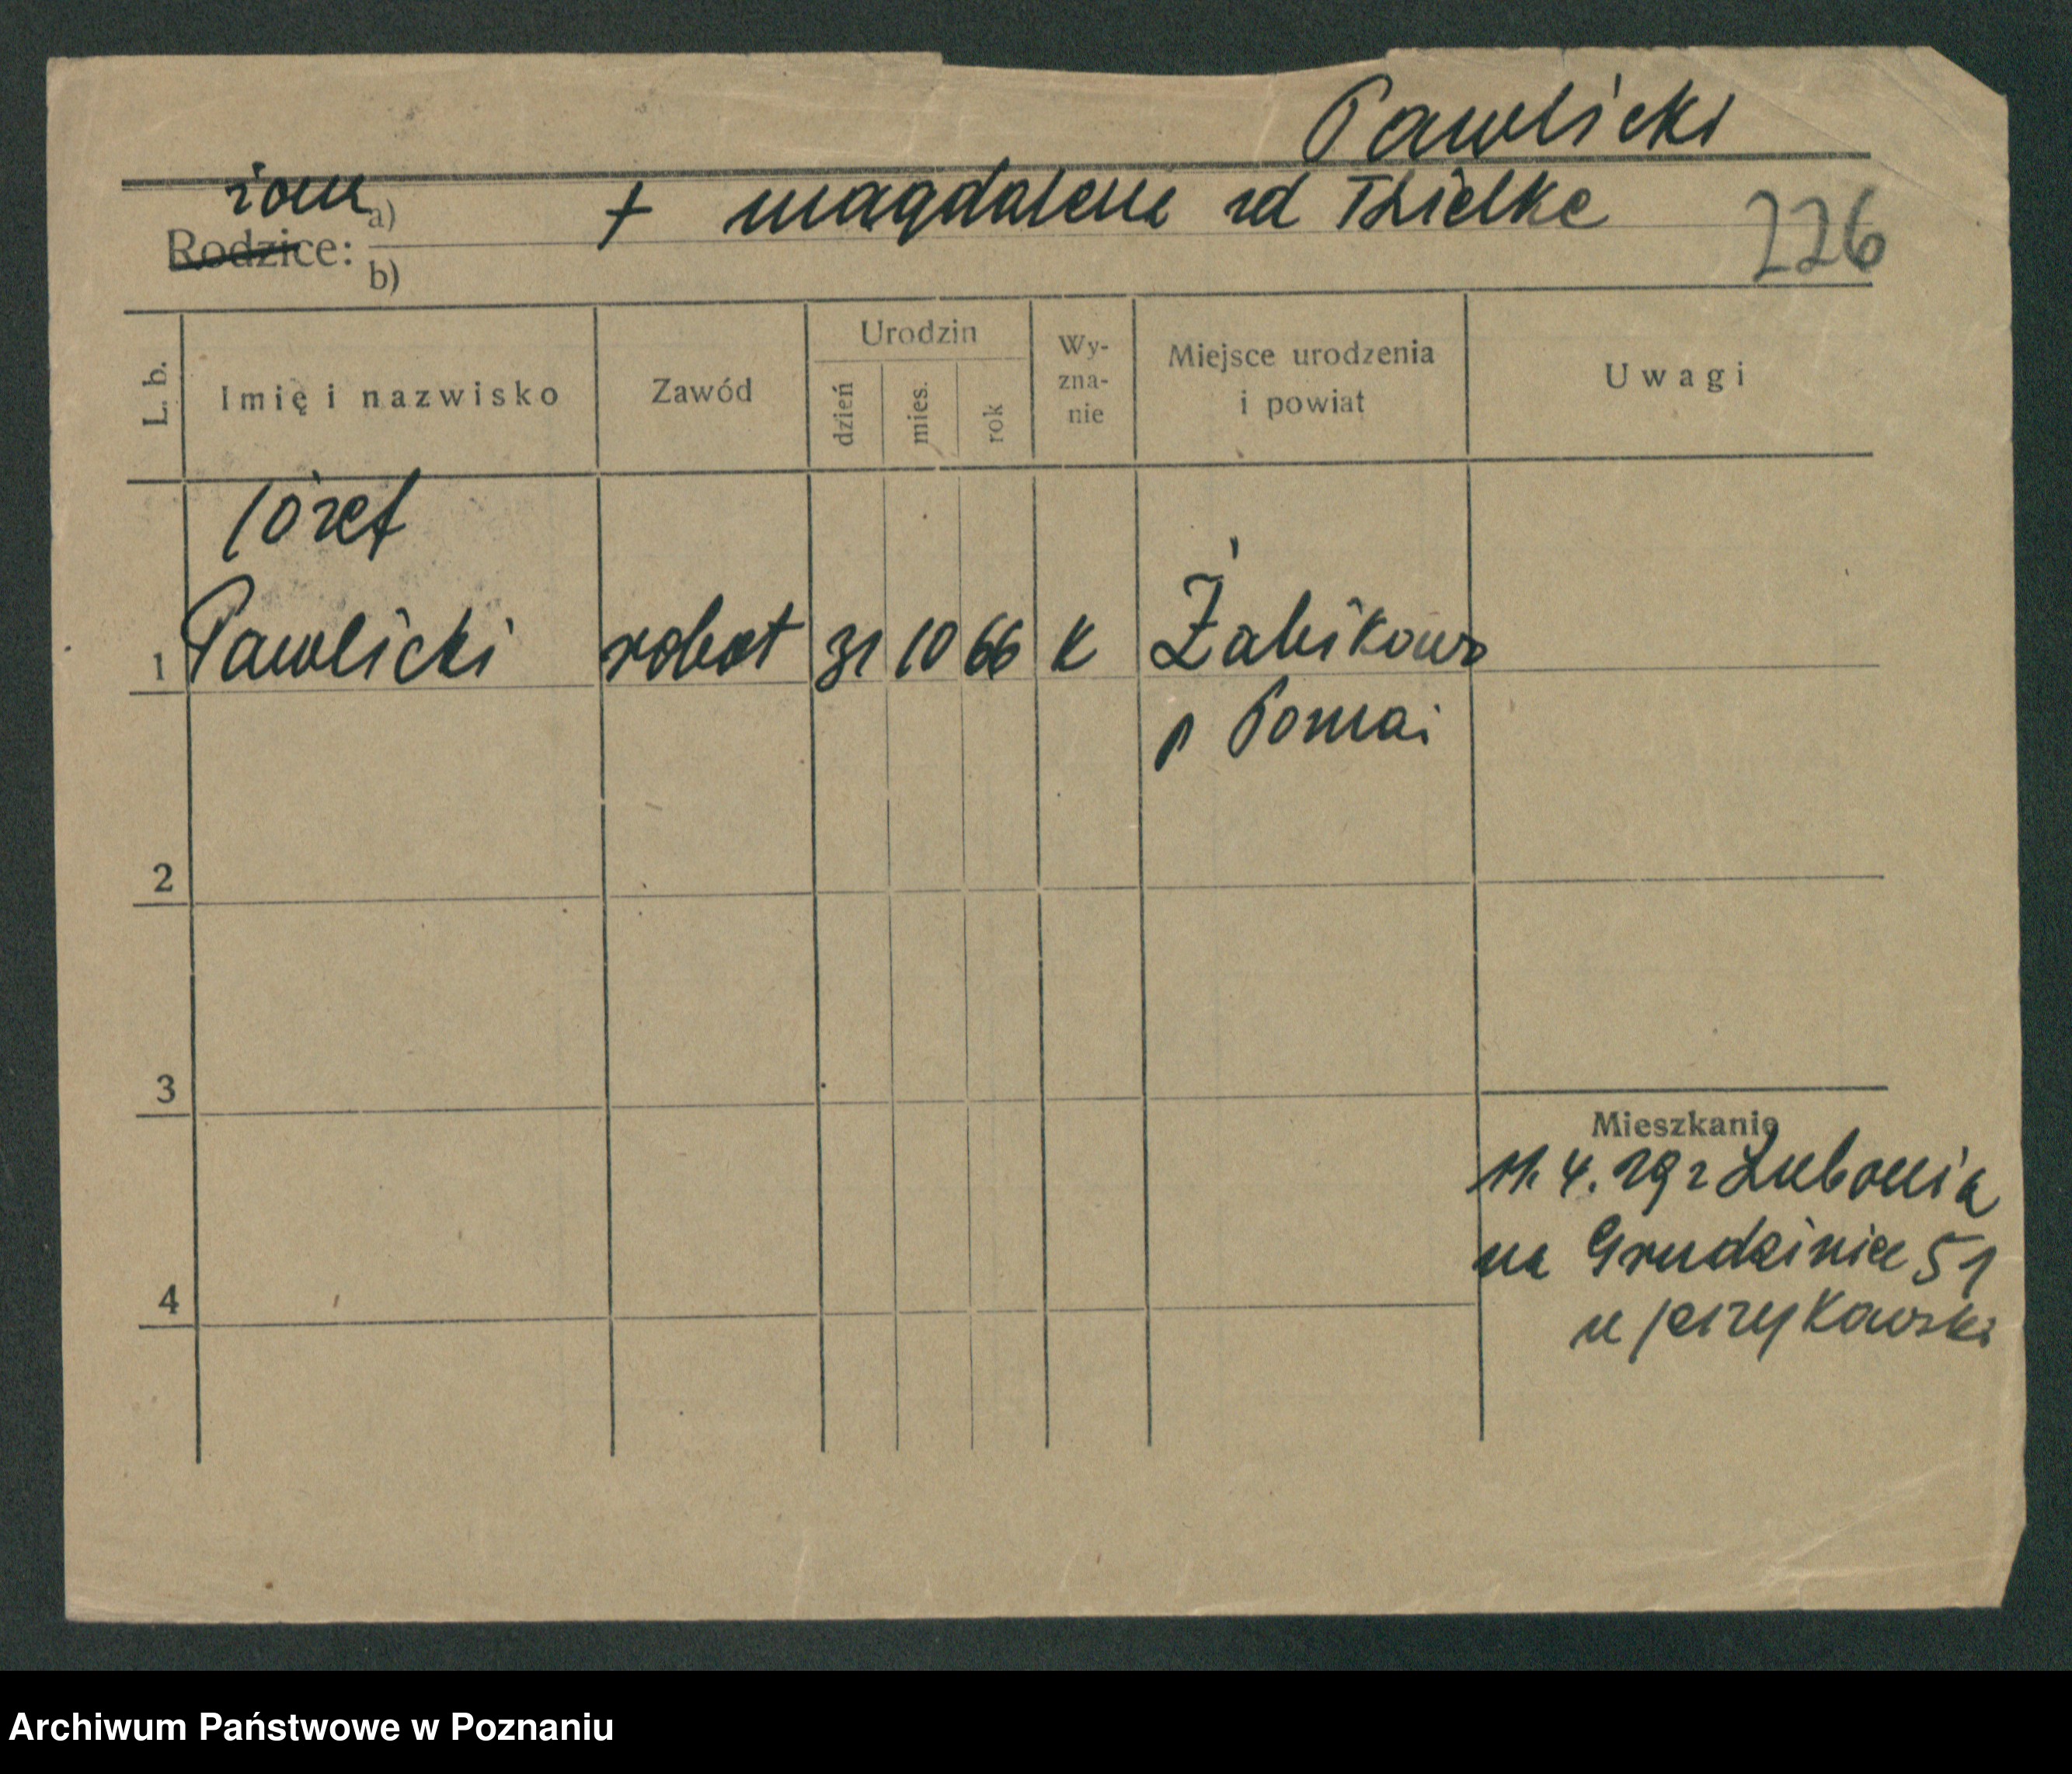 Pawlicki
żona a) + Magdalena zd Thielke 226
Rodzice:
b)
L. b. Imię i nazwisko Zawód Urodzin dzień mies. rok Wy-zna-nie Miejsce urodzenia i powiat Uwagi
Józef
1 Pawlicki robot 31 10 66 k Żabikowo
p Poznań
2
3
Mieszkanie
11. 4. 29 z Lubonia
na Grudzieniec 51
4
u Jerzykowski
Archiwum Państwowe w Poznaniu